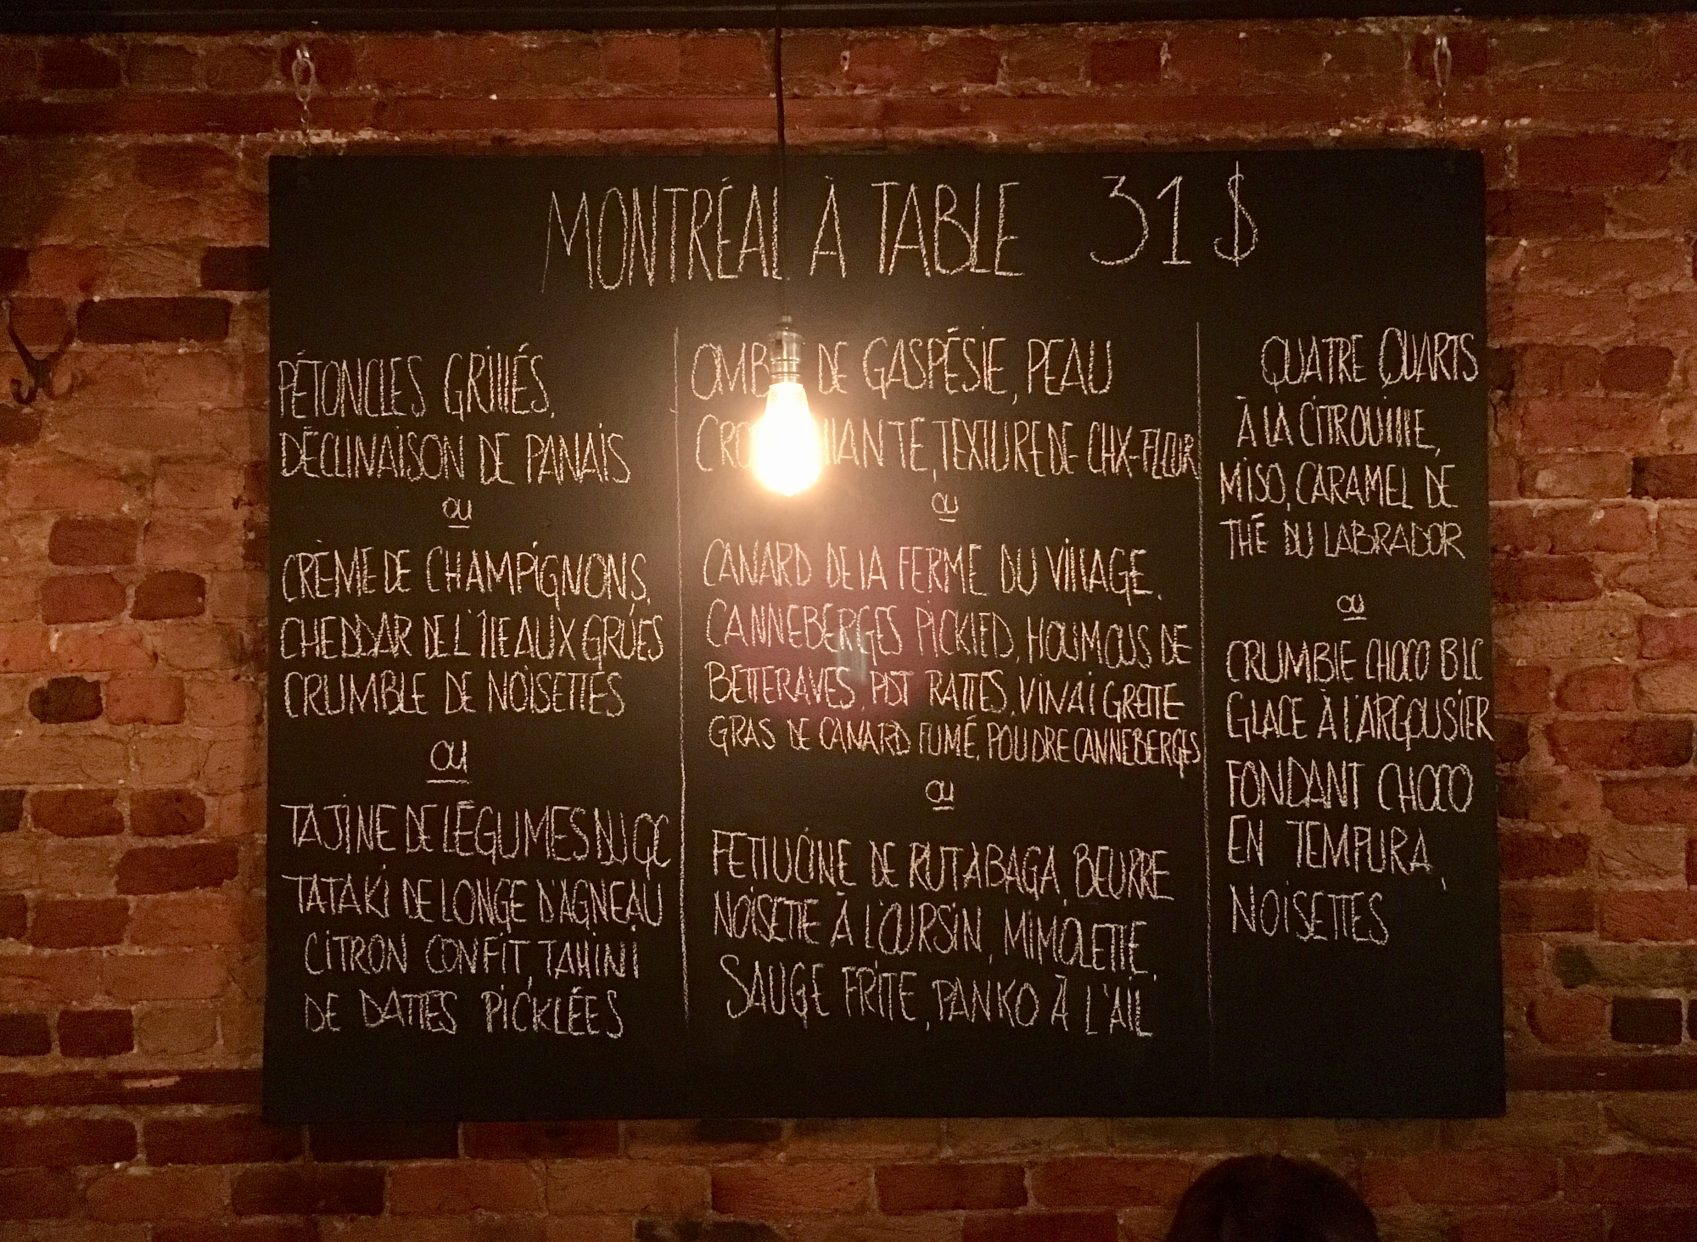 MONTRÉAL À TABLE 31 $
PÉTONCLES GRILLÉS,
DÉCLINAISON DE PANAIS
OU
CRÈME DE CHAMPIGNONS,
CHEDDAR DE L'ÎLE AUX GRUES
CRUMBLE DE NOISETTES
OU
TAJINE DE LÉGUMES DU QC
TATAKI DE LONGE D'AGNEAU
CITRON CONFIT, TAHINI
DE DATTES PICKLÉES
DE GASPÉSIE, PEAU
TEXTURE DE CHX-FLEUR
OU
CANARD DE LA FERME DU VILLAGE.
CANNEBERGES PICKLED, HOUMOUS DE
BETTERAVES, PDT RATTES, VINAIGRETTE
GRAS DE CANARD FUMÉ, POUDRE CANNEBERGES
OU
FETTUCINE DE RUTABAGA, BEURRE
NOISETTE À L'OURSIN, MIMOLETTE,
SAUGE FRITE, PANKO À L'AIL
QUATRE QUARTS
À LA CITROUILLE,
MISO, CARAMEL DE
THÉ DU LABRADOR
OU
CRUMBLE CHOCO BLC
GLACE À L'ARGOUSIER
FONDANT CHOCO
EN TEMPURA,
NOISETTES